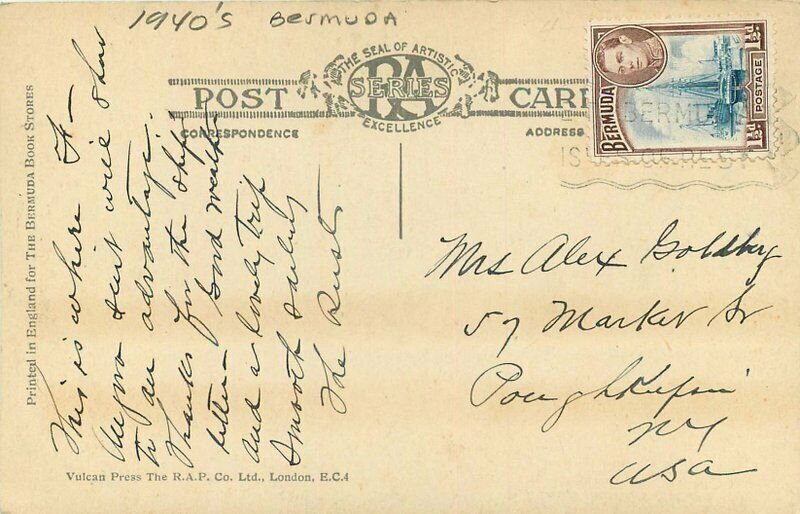 1940's BERMUDA
POST CARD
THE SEAL OF ARTISTIC
RA
SERIES
EXCELLENCE
CORRESPONDENCE
ADDRESS
BERMUDA
POSTAGE
1½d
1½d
BERMUDA
Printed in England for THE BERMUDA BOOK STORES
This is where A—
suit will show
to an advantage.
Thanks for the ship
letter— Good weather
and a lovely trip
Smooth sailing
The Rusts.
Mrs Alex Goldberg
57 Market St
Poughkeepsie
NY
USA
Vulcan Press The R.A.P. Co. Ltd., London, E.C.4